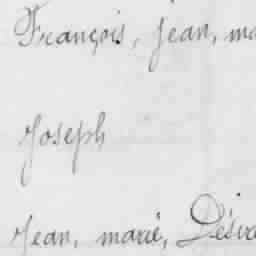 François, jean, ma
Joseph
Jean, marie, Désiré